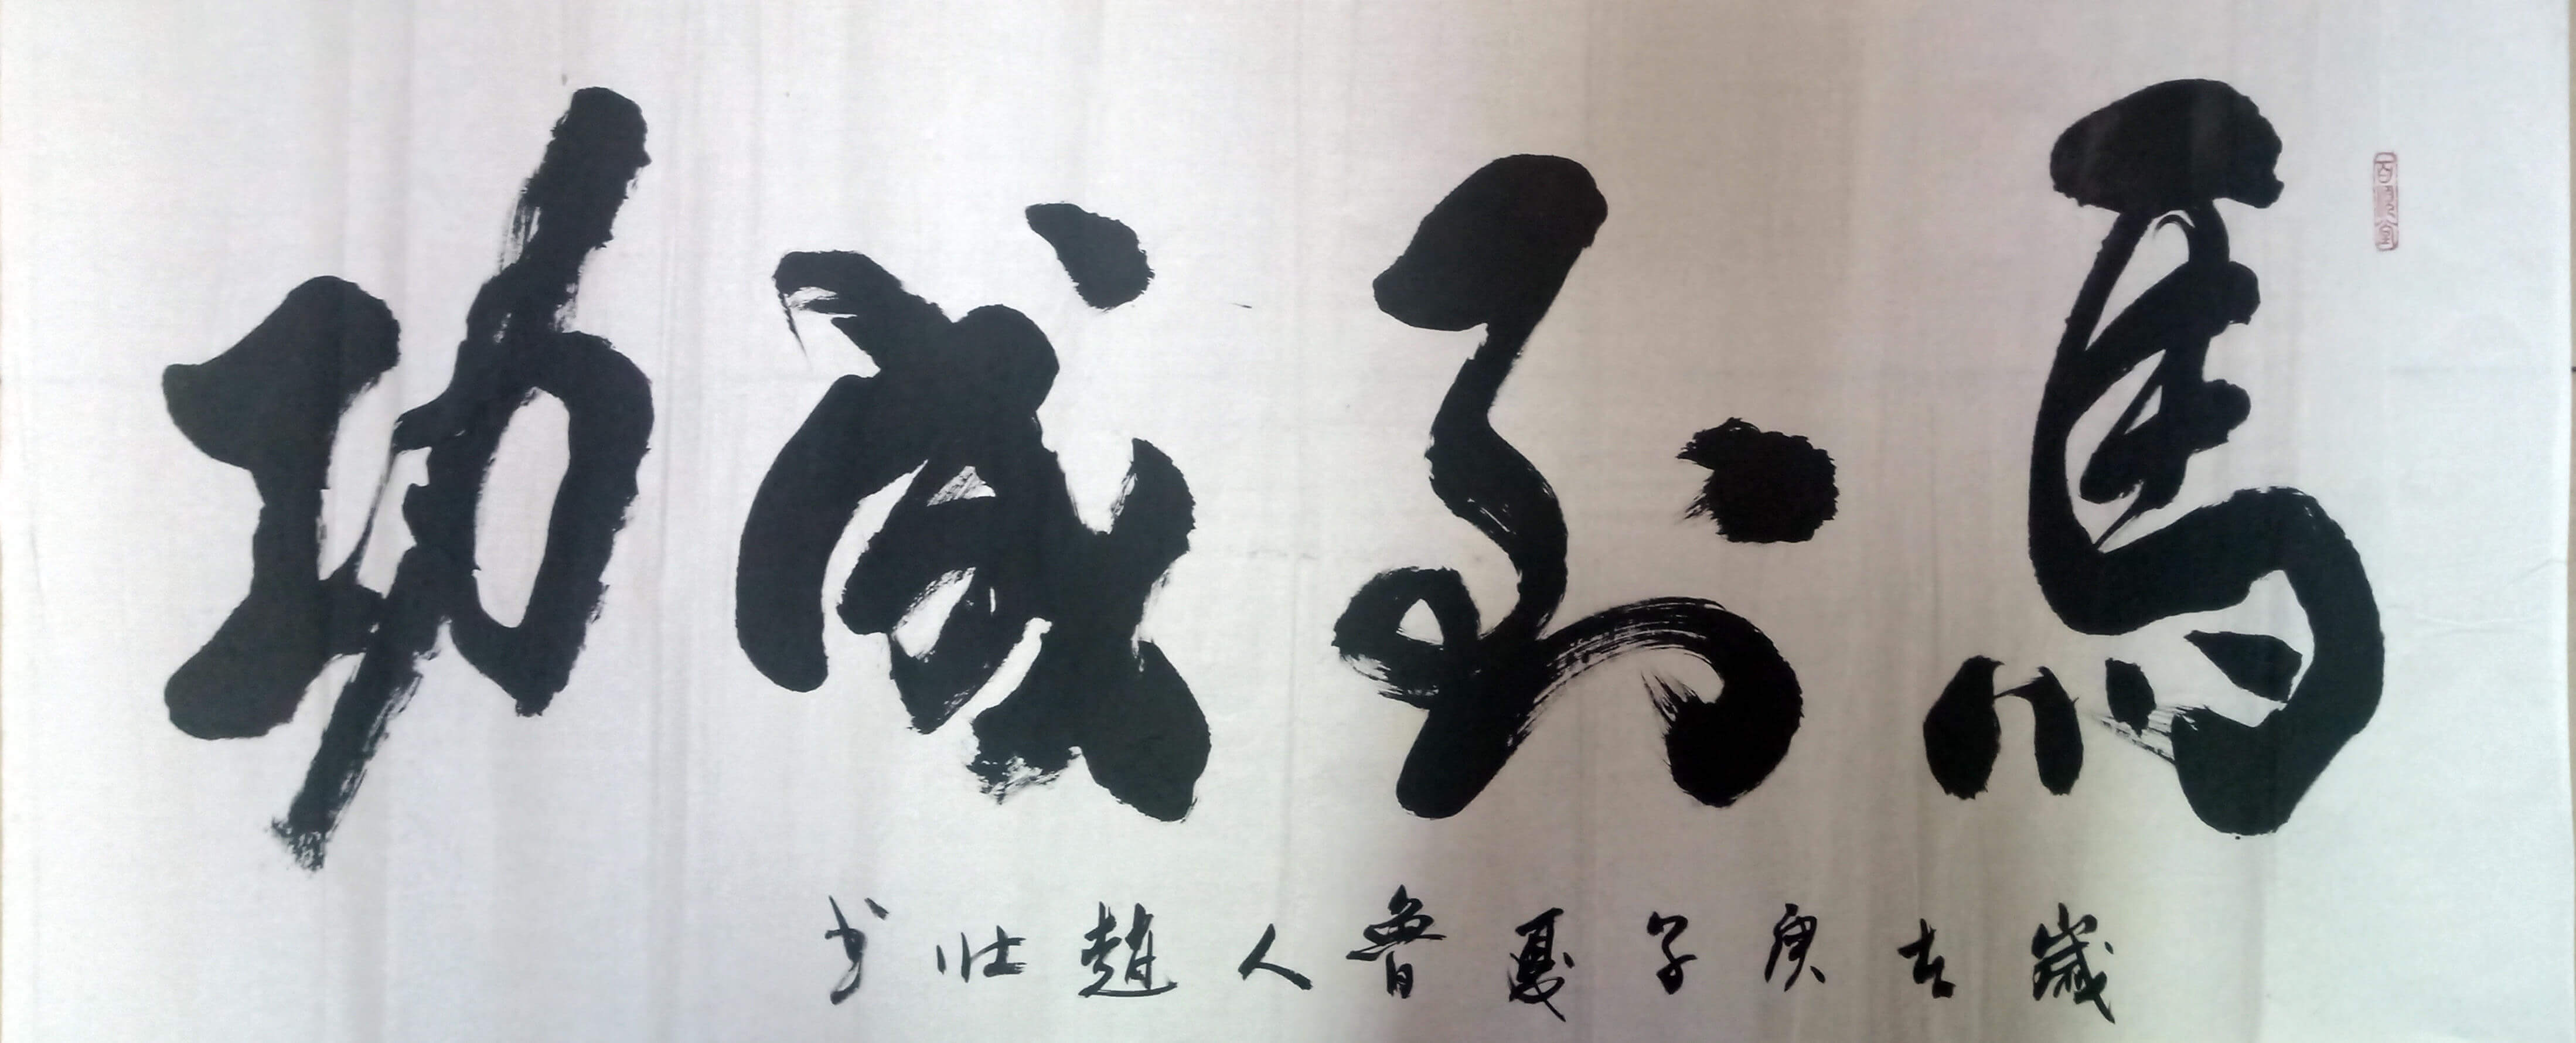 馬到成功
歲在庚子夏魯人趙壯书